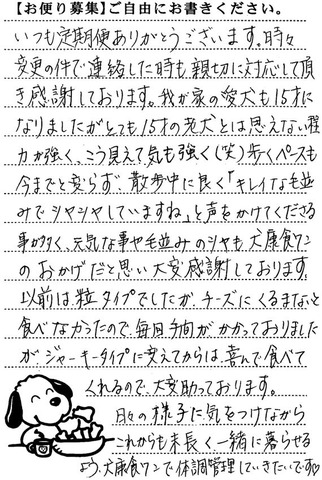 【お便り募集】ご自由にお書きください。
いつも定期便ありがとうございます。時々
変更の件で連絡した時も親切に対応して頂
き感謝しております。我が家の愛犬も15才に
なりましたがとても15才の老犬とは思えない程
力が強く、こう見えて気も強く(笑)歩くペースも
今までと変らず、散歩中に良く「キレイな毛並
みでシャシャしていますね」と声をかけてくださる
事が多く、元気な事や毛並みのシャも犬康食ワン
のおかげだと思い大変感謝しております。
以前は、粒タイプでしたが、チーズにくるまないと
食べなかったので、毎回手間がかかっておりました
が、ジャーキータイプに変えてからは、喜んで食べて
くれるので、大変助っております。
日々の様子に気をつけながら
これからも末長く一緒に暮らせる
よう、犬康食ワンで体調管理していきたいです